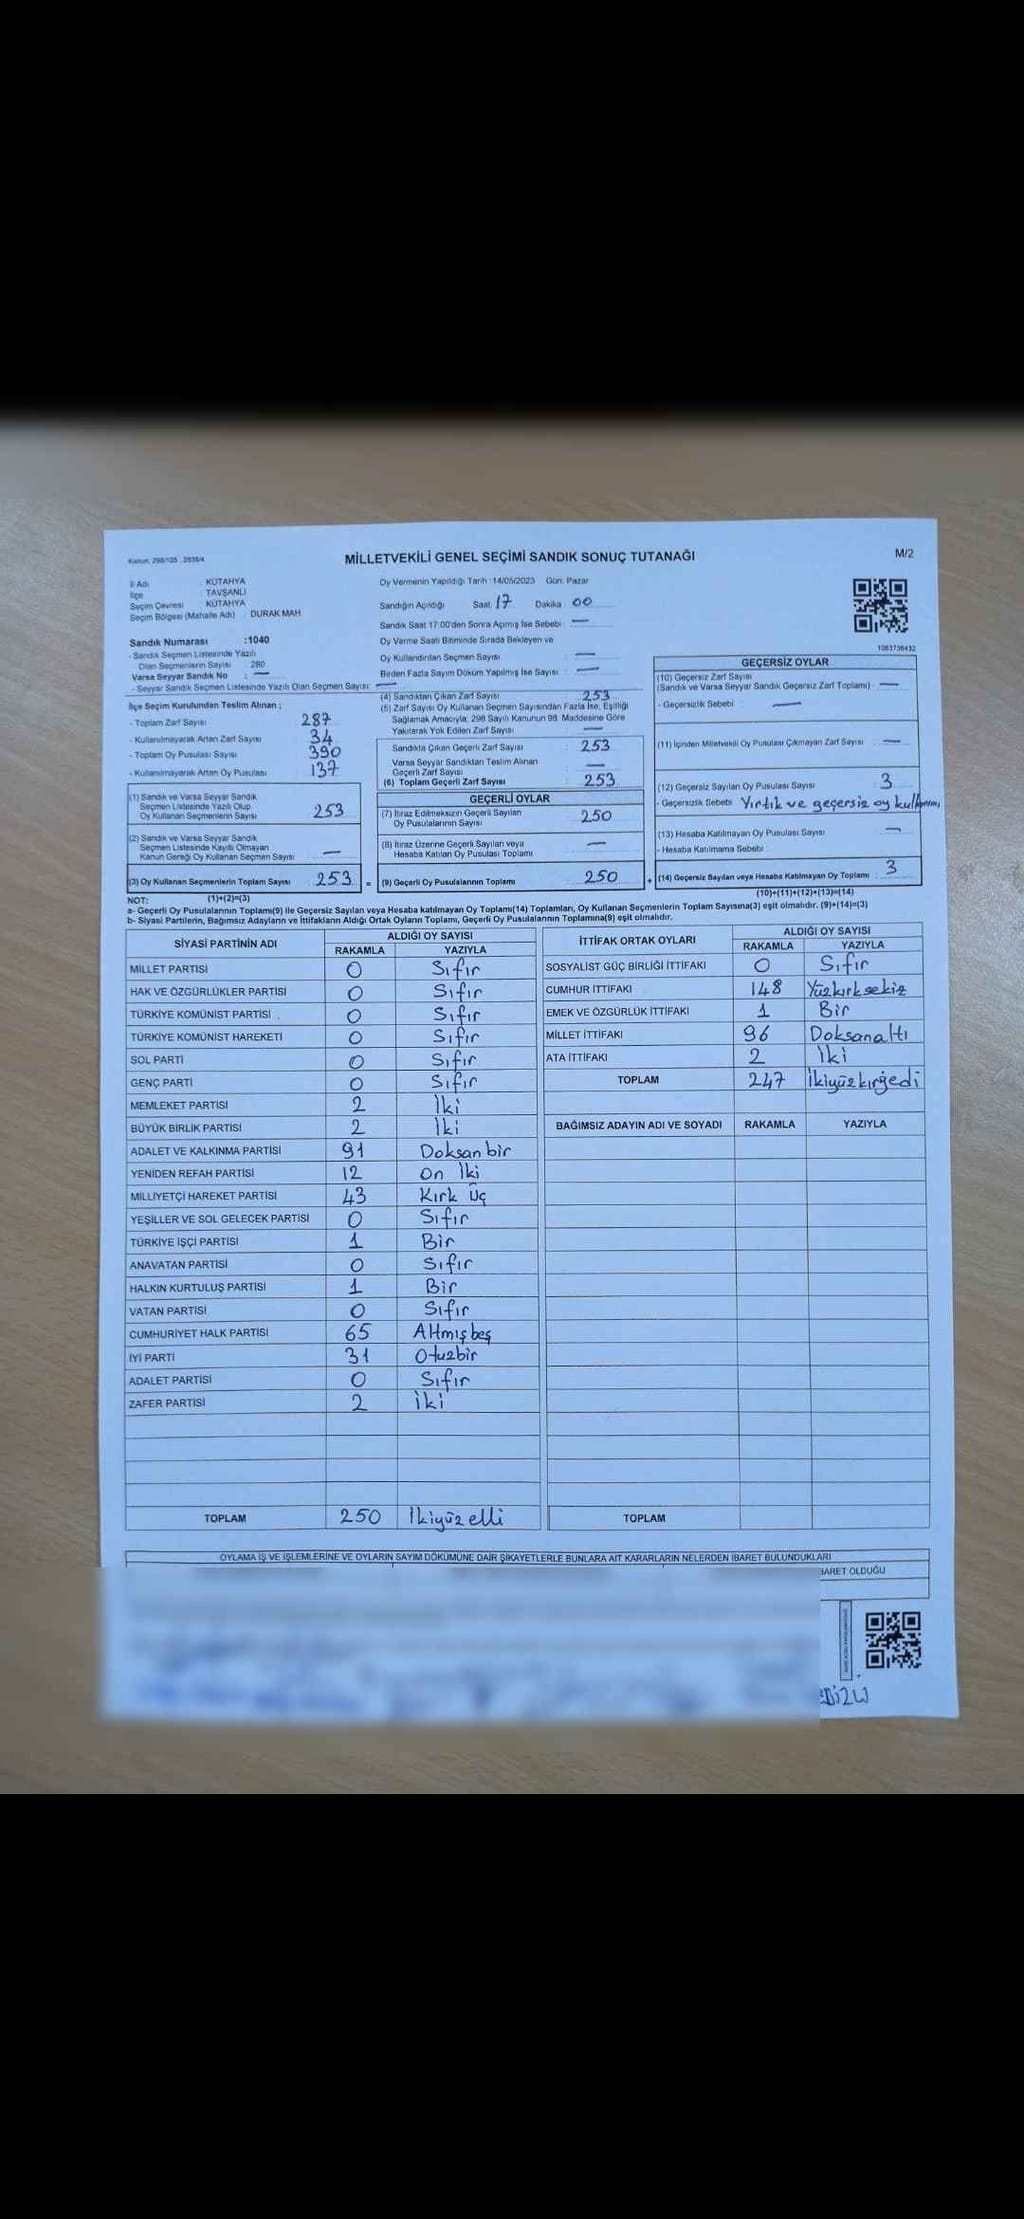 Kanun; 298/105 , 2839/4
MİLLETVEKİLİ GENEL SEÇİMİ SANDIK SONUÇ TUTANAĞI
M/2
İl Adı : KÜTAHYA
İlçe : TAVŞANLI
Seçim Çevresi : KÜTAHYA
Seçim Bölgesi (Mahalle Adı) : DURAK MAH
Sandık Numarası :1040
- Sandık Seçmen Listesinde Yazılı
Olan Seçmenlerin Sayısı : 280
Varsa Seyyar Sandık No : —
- Seyyar Sandık Seçmen Listesinde Yazılı Olan Seçmen Sayısı: —
Oy Vermenin Yapıldığı Tarih :14/05/2023 Gün: Pazar
Sandığın Açıldığı Saat: 17 Dakika 00
Sandık Saat 17:00'den Sonra Açımış İse Sebebi : —
Oy Verme Saati Bitiminde Sırada Bekleyen ve
Oy Kullandırılan Seçmen Sayısı : —
Birden Fazla Sayım Döküm Yapılmış İse Sayısı : —
1083736432
İlçe Seçim Kurulundan Teslim Alınan ;
- Toplam Zarf Sayısı : 287
- Kullanılmayarak Artan Zarf Sayısı : 34
- Toplam Oy Pusulası Sayısı : 390
- Kullanılmayarak Artan Oy Pusulası : 137
(1) Sandık ve Varsa Seyyar Sandık
Seçmen Listesinde Yazılı Olup
Oy Kullanan Seçmenlerin Sayısı : 253
(2) Sandık ve Varsa Seyyar Sandık
Seçmen Listesinde Kayıtlı Olmayan
Kanun Gereği Oy Kullanan Seçmen Sayısı : —
(3) Oy Kullanan Seçmenlerin Toplam Sayısı : 253 =
(4) Sandıktan Çıkan Zarf Sayısı : 253
(5) Zarf Sayısı Oy Kullanan Seçmen Sayısından Fazla İse, Eşitliği
Sağlamak Amacıyla, 298 Sayılı Kanunun 98. Maddesine Göre
Yakılarak Yok Edilen Zarf Sayısı : —
Sandıkta Çıkan Geçerli Zarf Sayısı : 253
Varsa Seyyar Sandıktan Teslim Alınan
Geçerli Zarf Sayısı : —
(6) Toplam Geçerli Zarf Sayısı : 253
GEÇERLİ OYLAR
(7) İtiraz Edilmeksizin Geçerli Sayılan
Oy Pusulalarının Sayısı : 250
(8) İtiraz Üzerine Geçerli Sayılan veya
Hesaba Katılan Oy Pusulası Toplamı : —
(9) Geçerli Oy Pusulalarının Toplamı : 250 +
GEÇERSİZ OYLAR
(10) Geçersiz Zarf Sayısı
(Sandık ve Varsa Seyyar Sandık Geçersiz Zarf Toplamı) : —
- Geçersizlik Sebebi : —
(11) İçinden Milletvekili Oy Pusulası Çıkmayan Zarf Sayısı : —
(12) Geçersiz Sayılan Oy Pusulası Sayısı : 3
- Geçersizlik Sebebi : Yırtık ve geçersiz oy kullanımı
(13) Hesaba Katılmayan Oy Pusulası Sayısı : —
- Hesaba Katılmama Sebebi :
(14) Geçersiz Sayılan veya Hesaba Katılmayan Oy Toplamı : 3
NOT: (1)+(2)=(3) (10)+(11)+(12)+(13)=(14)
a- Geçerli Oy Pusulalarının Toplamı(9) ile Geçersiz Sayılan veya Hesaba katılmayan Oy Toplamı(14) Toplamları, Oy Kullanan Seçmenlerin Toplam Sayısına(3) eşit olmalıdır. (9)+(14)=(3)
b- Siyasi Partilerin, Bağımsız Adayların ve İttifakların Aldığı Ortak Oyların Toplamı, Geçerli Oy Pusulalarının Toplamına(9) eşit olmalıdır.
SİYASİ PARTİNİN ADI ALDIĞI OY SAYISI
RAKAMLA YAZIYLA
MİLLET PARTİSİ 0 Sıfır
HAK VE ÖZGÜRLÜKLER PARTİSİ 0 Sıfır
TÜRKİYE KOMÜNİST PARTİSİ 0 Sıfır
TÜRKİYE KOMÜNİST HAREKETİ 0 Sıfır
SOL PARTİ 0 Sıfır
GENÇ PARTİ 0 Sıfır
MEMLEKET PARTİSİ 2 İki
BÜYÜK BİRLİK PARTİSİ 2 İki
ADALET VE KALKINMA PARTİSİ 91 Doksan bir
YENİDEN REFAH PARTİSİ 12 On İki
MİLLİYETÇİ HAREKET PARTİSİ 43 Kırk Üç
YEŞİLLER VE SOL GELECEK PARTİSİ 0 Sıfır
TÜRKİYE İŞÇİ PARTİSİ 1 Bir
ANAVATAN PARTİSİ 0 Sıfır
HALKIN KURTULUŞ PARTİSİ 1 Bir
VATAN PARTİSİ 0 Sıfır
CUMHURİYET HALK PARTİSİ 65 Altmış beş
İYİ PARTİ 31 Otuzbir
ADALET PARTİSİ 0 Sıfır
ZAFER PARTİSİ 2 İki
TOPLAM 250 İkiyüz elli
İTTİFAK ORTAK OYLARI ALDIĞI OY SAYISI
RAKAMLA YAZIYLA
SOSYALİST GÜÇ BİRLİĞİ İTTİFAKI 0 Sıfır
CUMHUR İTTİFAKI 148 Yüzkırksekiz
EMEK VE ÖZGÜRLÜK İTTİFAKI 1 Bir
MİLLET İTTİFAKI 96 Doksanaltı
ATA İTTİFAKI 2 İki
TOPLAM 247 İkiyüzkırkyedi
BAĞIMSIZ ADAYIN ADI VE SOYADI RAKAMLA YAZIYLA
TOPLAM
OYLAMA İŞ VE İŞLEMLERİNE VE OYLARIN SAYIM DÖKÜMÜNE DAİR ŞİKAYETLERLE BUNLARA AİT KARARLARIN NELERDEN İBARET BULUNDUKLARI
BARET OLDUĞU